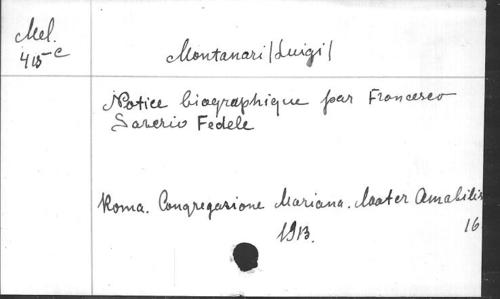 Mel.
415 c
Montanari /Luigi/
Notice biographique par Francesco
Saverio Fedele
Roma. Congregasione Mariana. Maater Amabilis
1913. 16